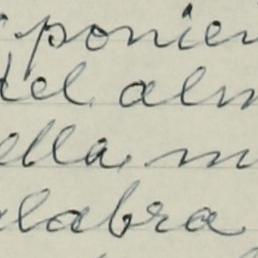 ponien
del alm
ella m
alabra